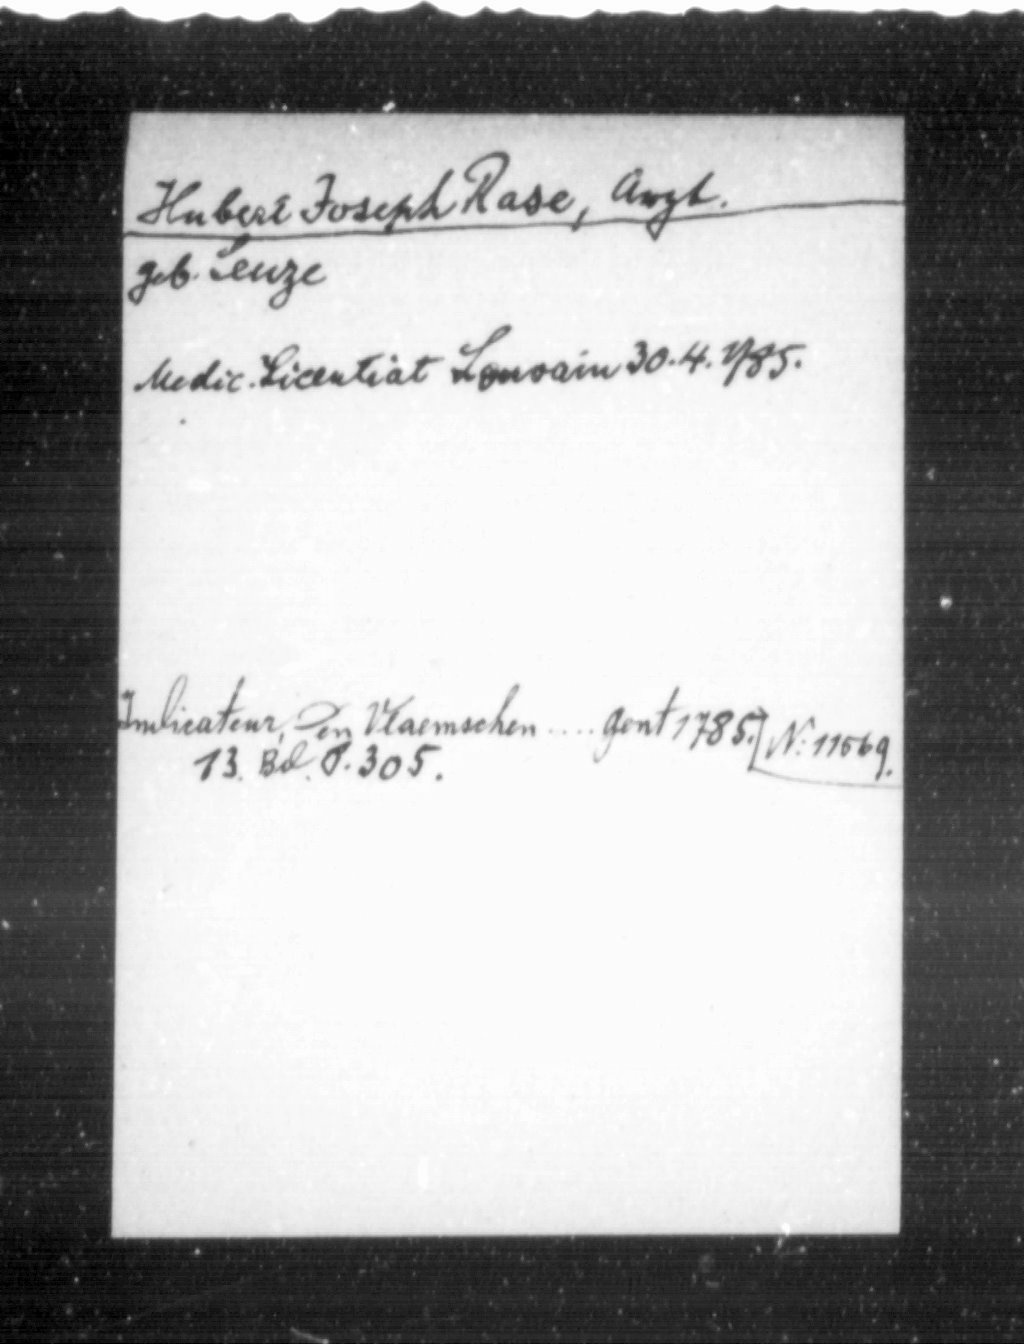 Hubert Joseph Rase, Arzt.
geb. Leuze
Medic. Licentiat Louvain 30.4.1785.
Indicateur, Den Vlaemschen .... gent 1785.] N: 11569.
13. Bd. P. 305.